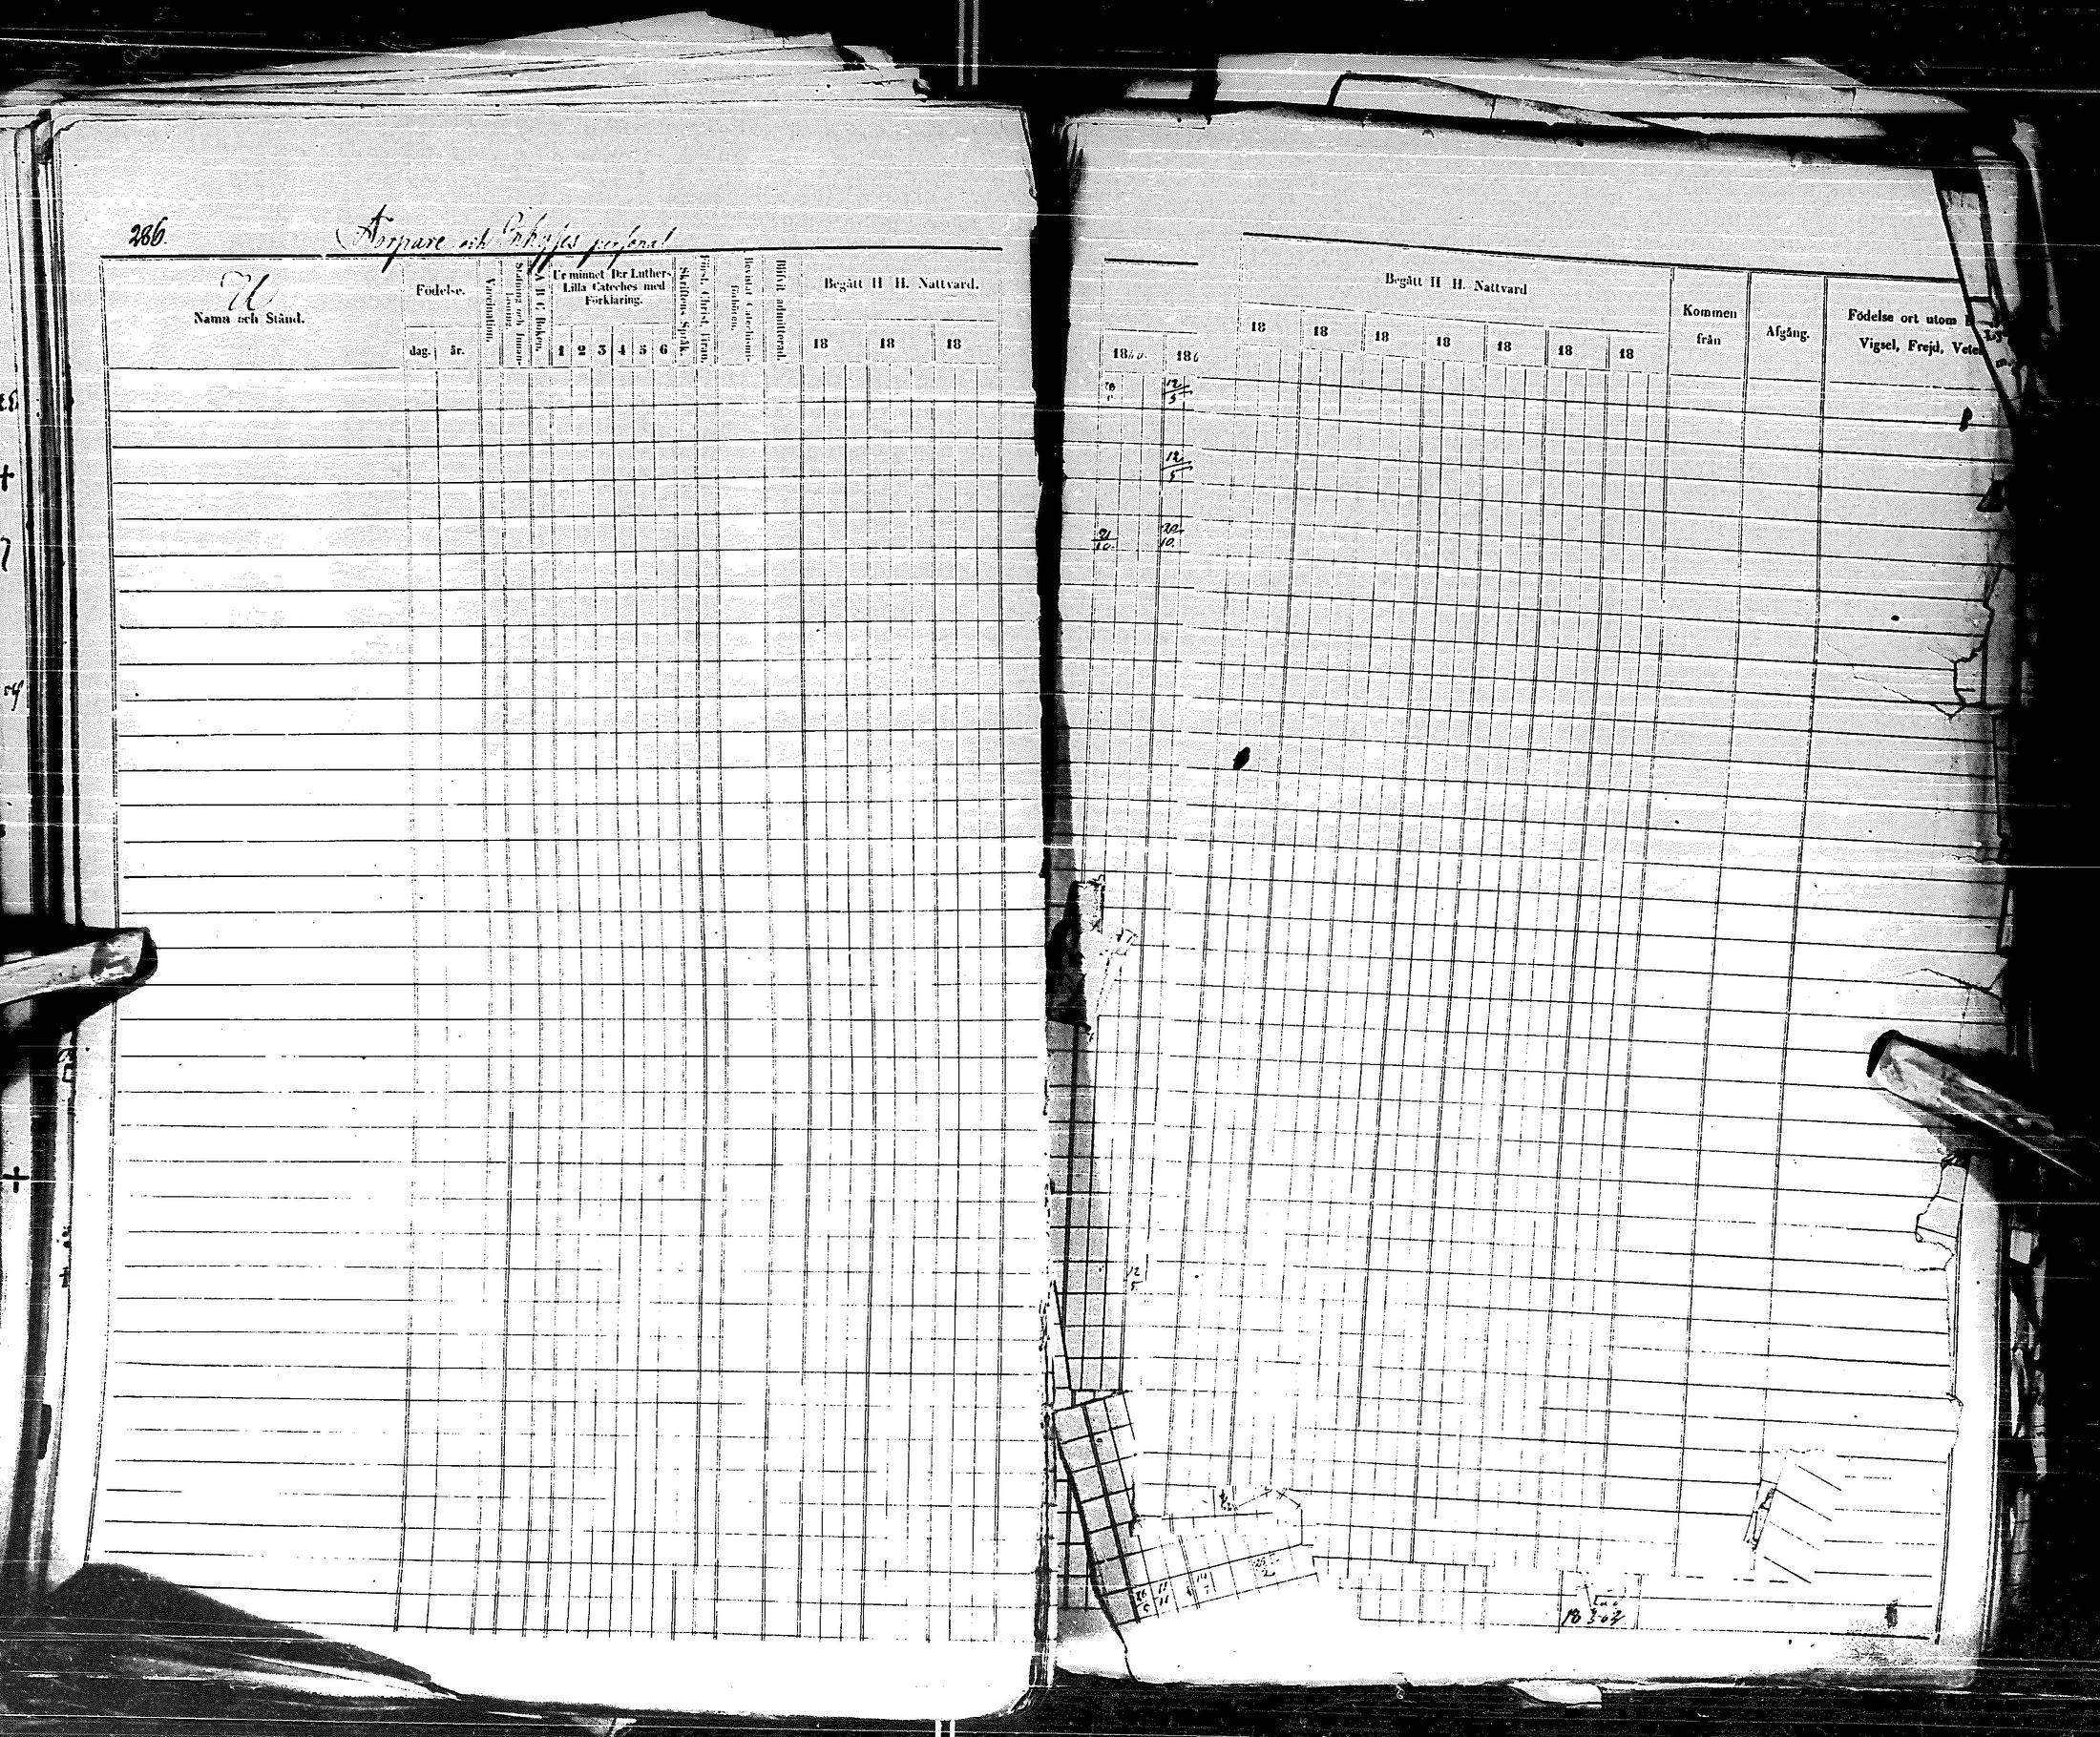 286.
Torpare och Inhyses personal
U
Namn och Stånd.
Födelse.
dag. år.
Vaccination.
Stafning och Innan-
läsning.
A B C Boken.
Ur minnet D:r Luthers
Lilla Cateches med
Förklaring.
1 2 3 4 5 6
Skriftens Språk.
Först. Christ. Firan.
Bevistat Catechismi-
förhören.
Blifvit admitterad.
Begått H H. Nattvard.
18 18 18
1860. 186
12
5
12
5
21
10.
20
10.
Begått H H. Nattvard
18 18 18 18 18 18 18
Kommen
från
Afgång.
Födelse ort utom
Vigsel, Frejd,
12
5